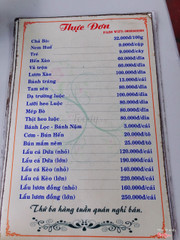 Thực Đơn
Chả Bò 32.000đ/100g
Nem Huế 9.000đ/cặp
Tré 9.000đ/cặp
Bền Xào 90.000đ/dĩa
Vả trộn 80.000đ/dĩa
Lươn Xào 100.000đ/dĩa
Bánh tráng 12.000đ/cái
Tam sên 80.000đ/dĩa
Dạ trường luộc 100.000đ/dĩa
Lưỡi heo Luộc 80.000đ/dĩa
Mép Bò 80.000đ/dĩa
Thịt heo luộc 80.000đ/dĩa
Bánh Lọc - Bánh Nậm 3.000đ/cái
Cơm - Bún Hến 20.000đ/tô
Bún mắm nêm 25.000đ/tô
Lẩu cá Dứa (nhỏ) 120.000đ/cái
Lẩu cá Dứa (lớn) 190.000đ/cái
Lẩu cá Kèo (nhỏ) 140.000đ/cái
Lẩu cá Kèo (lớn) 220.000đ/cái
Lẩu lươn đồng (nhỏ) 160.000đ/cái
Lẩu lươn đồng (lớn) 250.000đ/cái
Thứ ba hàng tuần quán nghỉ bán.